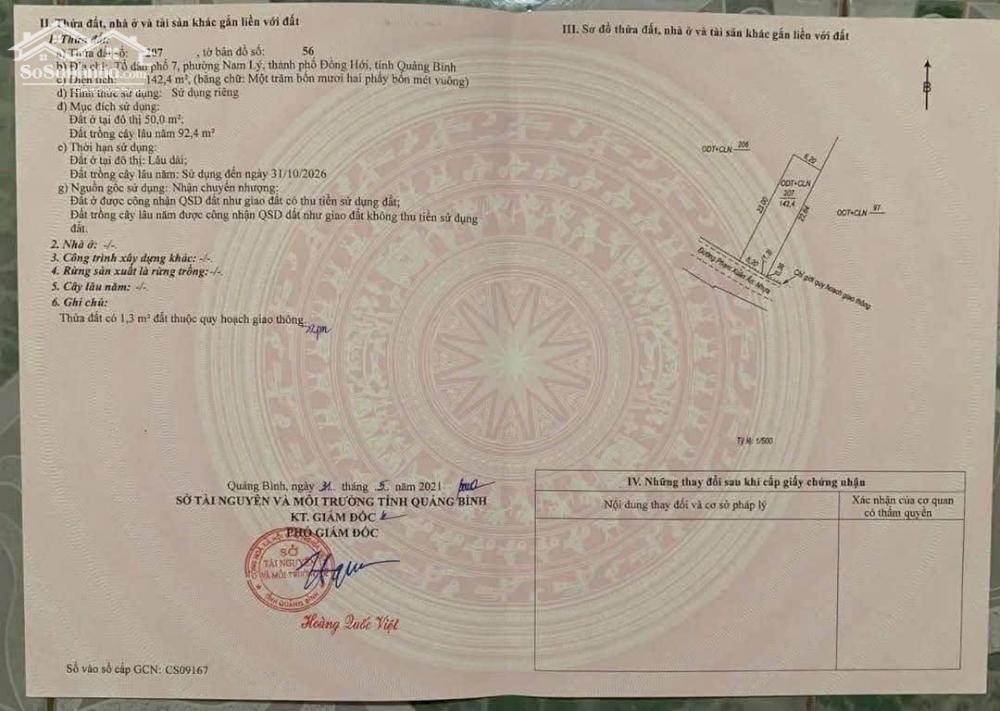 II. Thửa đất, nhà ở và tài sản khác gắn liền với đất
1. Thửa đất:
a) Thửa đất số: 207 , tờ bản đồ số: 56
b) Địa chỉ: Tổ dân phố 7, phường Nam Lý, thành phố Đồng Hới, tỉnh Quảng Bình
c) Diện tích: 142,4 m², (bằng chữ: Một trăm bốn mươi hai phẩy bốn mét vuông)
d) Hình thức sử dụng: Sử dụng riêng
đ) Mục đích sử dụng:
Đất ở tại đô thị 50,0 m²;
Đất trồng cây lâu năm 92,4 m²
e) Thời hạn sử dụng:
Đất ở tại đô thị: Lâu dài;
Đất trồng cây lâu năm: Sử dụng đến ngày 31/10/2026
g) Nguồn gốc sử dụng: Nhận chuyển nhượng:
Đất ở được công nhận QSD đất như giao đất có thu tiền sử dụng đất;
Đất trồng cây lâu năm được công nhận QSD đất như giao đất không thu tiền sử dụng
đất.
2. Nhà ở: -/-.
3. Công trình xây dựng khác: -/-.
4. Rừng sản xuất là rừng trồng:-/-.
5. Cây lâu năm: -/-.
6. Ghi chú:
Thửa đất có 1,3 m² đất thuộc quy hoạch giao thông.
SoSuNha.com
Quảng Bình, ngày 31 tháng 5 năm 2021
SỞ TÀI NGUYÊN VÀ MÔI TRƯỜNG TỈNH QUẢNG BÌNH
KT. GIÁM ĐỐC
PHÓ GIÁM ĐỐC
SỞ
TÀI NGUYÊN
VÀ MÔI TRƯỜNG
TỈNH QUẢNG BÌNH
Hoàng Quốc Việt
Số vào sổ cấp GCN: CS09167
III. Sơ đồ thửa đất, nhà ở và tài sản khác gắn liền với đất
B
ODT+CLN 206
6,20
ODT+CLN
207
142,4
23,00
22,64
ODT+CLN 97
5,20
Đường Phạm Xuân Ẩn, Nhựa
Chỉ giới quy hoạch giao thông
Tỷ lệ: 1/500
IV. Những thay đổi sau khi cấp giấy chứng nhận
Nội dung thay đổi và cơ sở pháp lý
Xác nhận của cơ quan
có thẩm quyền